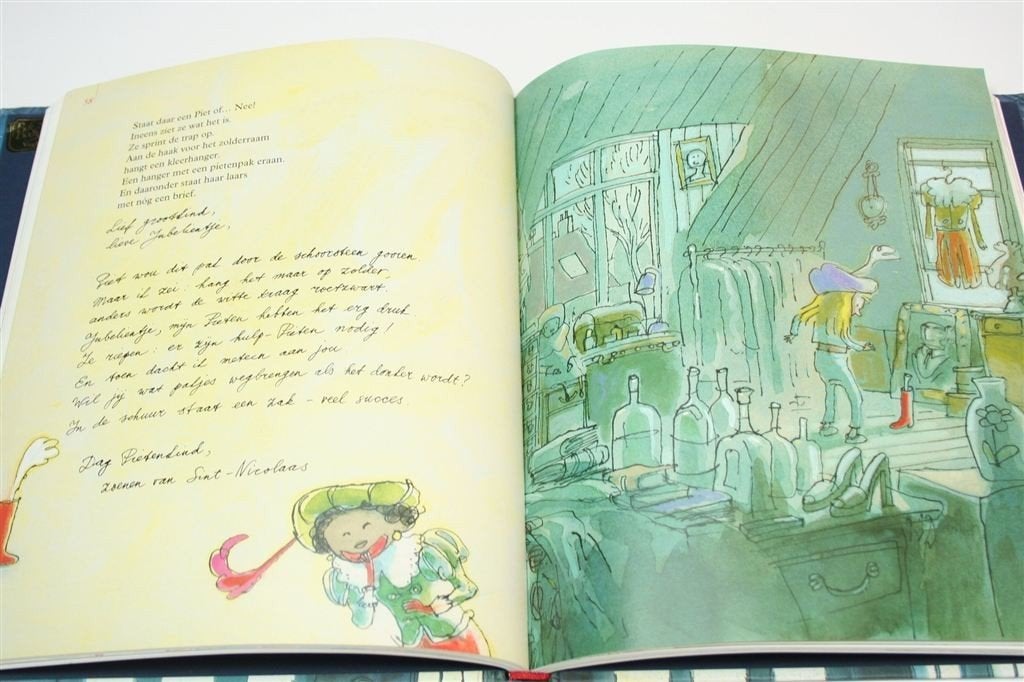 58
Staat daar een Piet of... Nee!
Ineens ziet ze wat het is.
Ze sprint de trap op.
Aan de haak voor het zolderraam
hangt een kleerhanger.
Een hanger met een pietenpak eraan.
En daaronder staat haar laars
met nóg een brief.
Lief grootkind,
lieve Ynbelientje,
Piet wou dit pak door de schoorsteen gooien
Maar ik zei: hang het maar op zolder
anders wordt de witte kraag roetzwart.
Ynbelientje, mijn Pieten hebben het erg druk.
Ze riepen: er zijn hulp-Pieten nodig!
En toen dacht ik meteen aan jou.
Wil jij wat pakjes wegbrengen als het donker wordt?
In de schuur staat een zak - veel succes.
Dag Pietenkind,
zoenen van Sint-Nicolaas